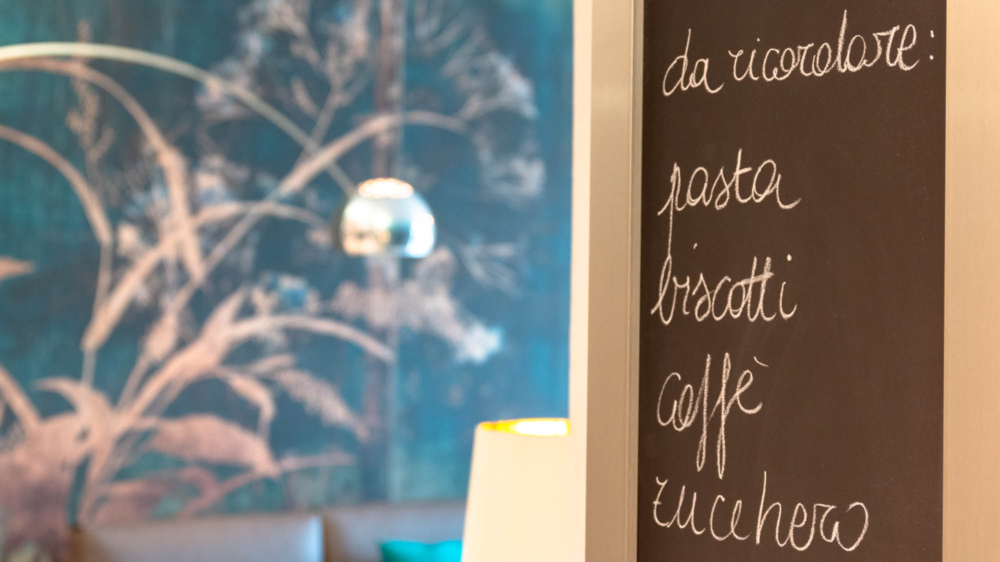 da ricordare:
pasta
biscotti
caffè
zucchero